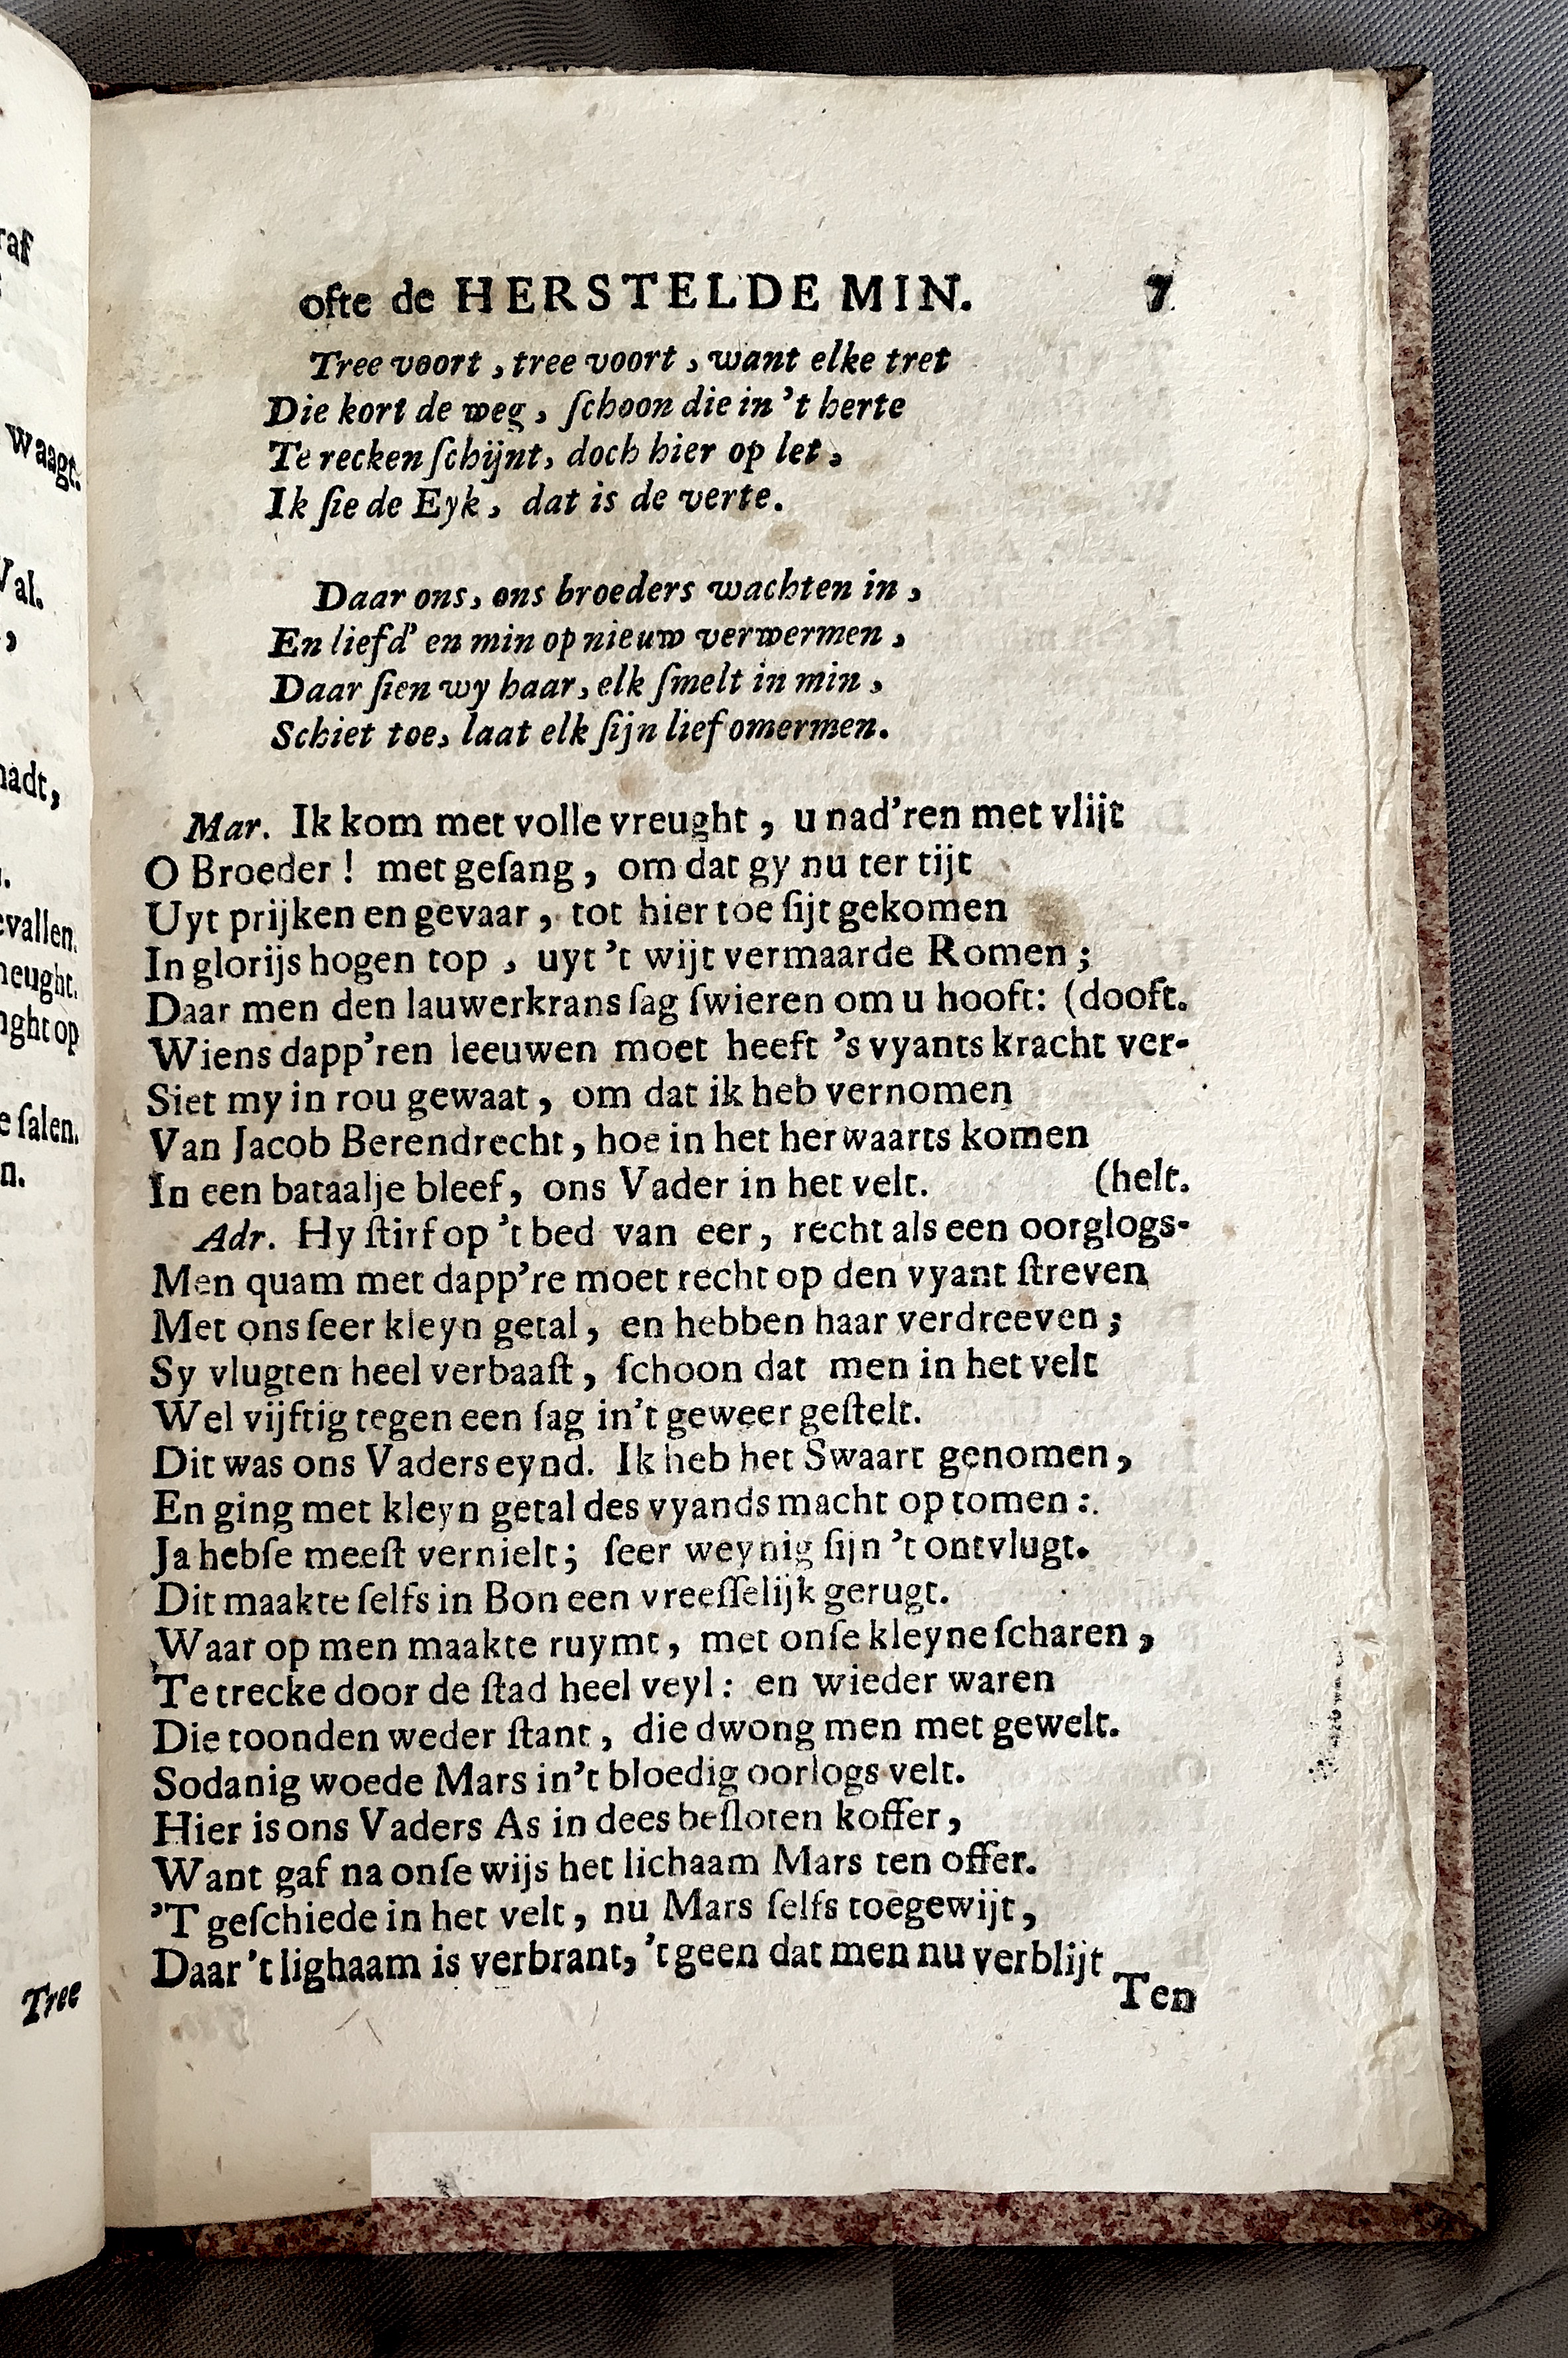 raf
waagt.
Val.
nadt,
evallen.
neught.
nght op
e ſalen.
n.
Tree
ofte de HERSTELDE MIN. 7
Tree voort, tree voort, want elke tret
Die kort de weg, ſchoon die in 't herte
Te recken ſchijnt, doch hier op let,
Ik ſie de Eyk, dat is de verte.
Daar ons, ons broeders wachten in,
En liefd' en min op nieuw verwermen,
Daar ſien wy haar, elk ſmelt in min,
Schiet toe, laat elk ſijn lief omermen.
Mar. Ik kom met volle vreught, u nad'ren met vlijt
O Broeder! met geſang, om dat gy nu ter tijt
Uyt prijken en gevaar, tot hier toe ſijt gekomen
In glorijs hogen top, uyt 't wijt vermaarde Romen;
Daar men den lauwerkrans ſag ſwieren om u hooft: (dooft.
Wiens dapp'ren leeuwen moet heeft 's vyants kracht ver-
Siet my in rou gewaat, om dat ik heb vernomen
Van Jacob Berendrecht, hoe in het herwaarts komen
In een bataalje bleef, ons Vader in het velt. (helt.
Adr. Hy ſtirf op 't bed van eer, recht als een oorglogs-
Men quam met dapp're moet recht op den vyant ſtreven
Met ons ſeer kleyn getal, en hebben haar verdreeven;
Sy vlugten heel verbaaſt, ſchoon dat men in het velt
Wel vijftig tegen een ſag in't geweer geſtelt.
Dit was ons Vaders eynd. Ik heb het Swaart genomen,
En ging met kleyn getal des vyands macht op tomen:
Ja hebſe meeſt vernielt; ſeer weynig ſijn 't ontvlugt.
Dit maakte ſelfs in Bon een vreeſſelijk gerugt.
Waar op men maakte ruymt, met onſe kleyne ſcharen,
Te trecke door de ſtad heel veyl: en wieder waren
Die toonden weder ſtant, die dwong men met gewelt.
Sodanig woede Mars in't bloedig oorlogs velt.
Hier is ons Vaders As in dees beſloten koffer,
Want gaf na onſe wijs het lichaam Mars ten offer.
'T geſchiede in het velt, nu Mars ſelfs toegewijt,
Daar 't lighaam is verbrant, 't geen dat men nu verblijt
Ten